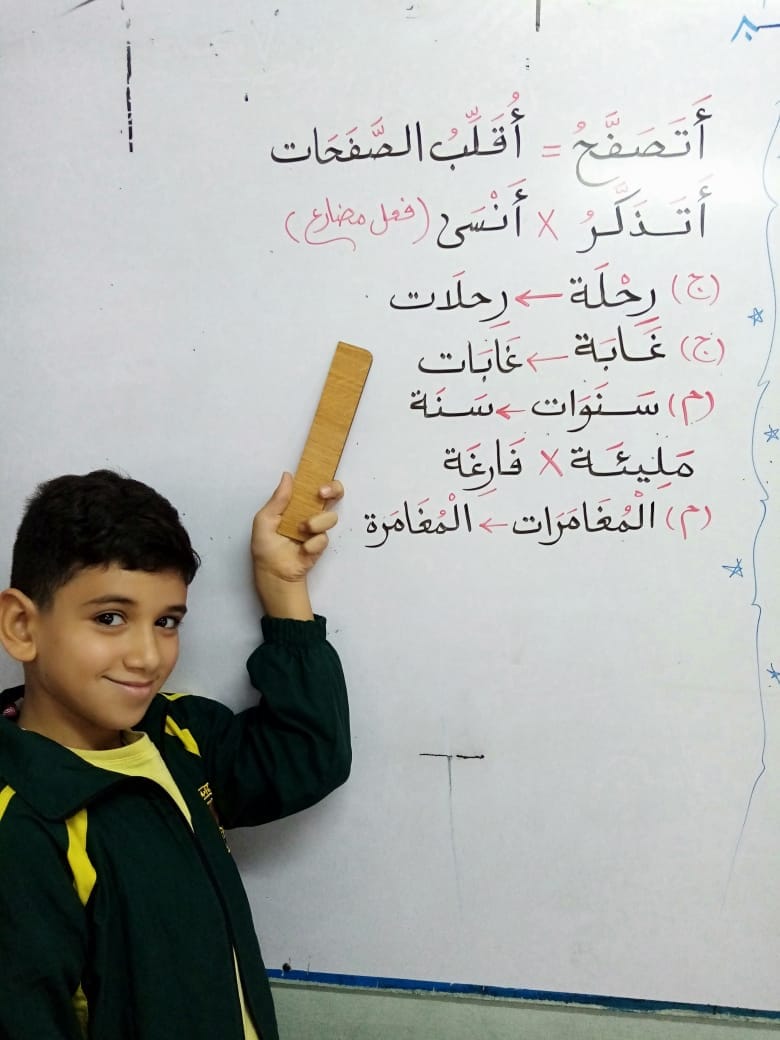 أَتَصَفَّحُ = أُقَلِّبُ الصَّفَحَات
أَتَذَكَّرُ X أَنْسَى (فعل مضارع)
(ج) رِحْلَة ← رِحلَات
(ج) غَابَة ← غَابَات
(م) سَنَوَات ← سَنَة
مَلِيئَة X فَارِغَة
(م) الْمُغَامَرَات ← الْمُغَامَرة